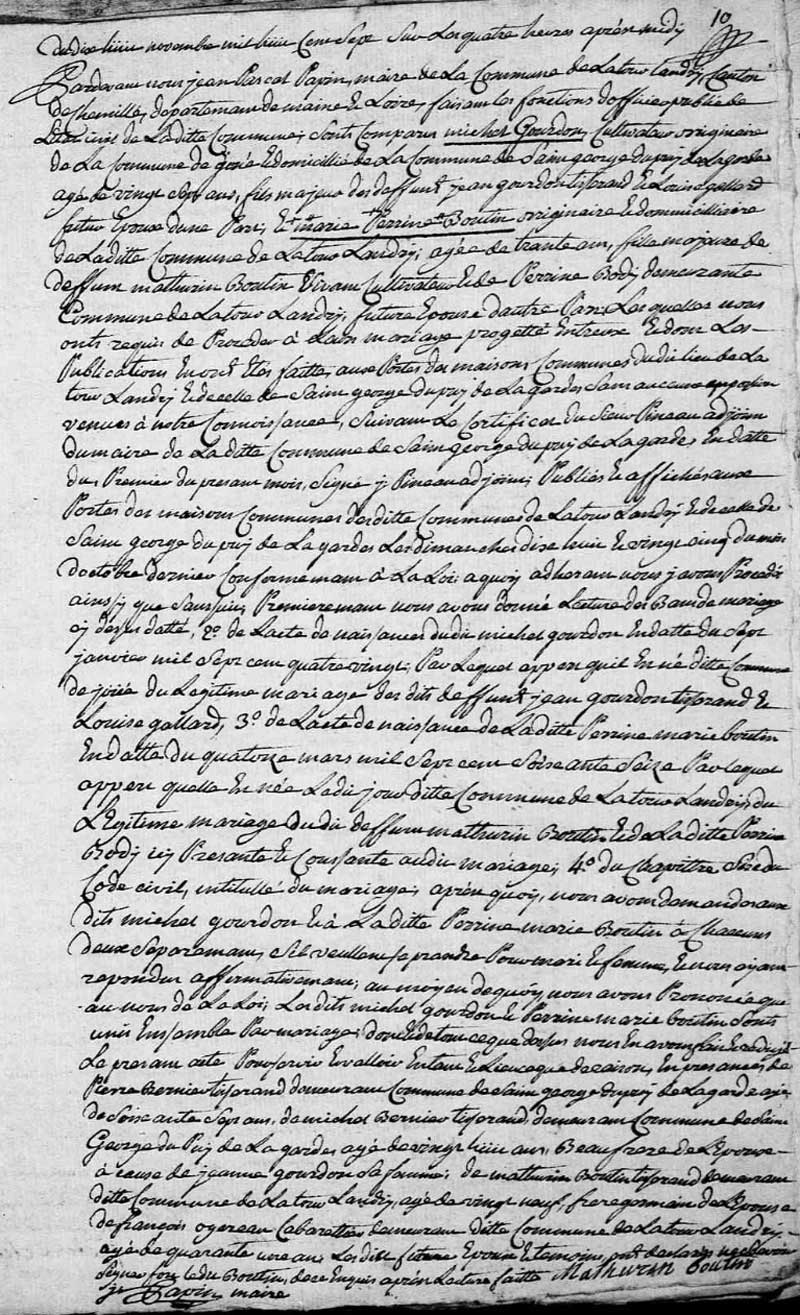 10
du dix huit novembre mil huit Cent Sept Sur Les quatre heures aprèn midy
Pardevant nous jean Pascal Papin, maire de La Commune de Latour Landry, Canton
de Chemillé, departemant de maine & Loire, faisant Les fonctions d'officier publicq de
L'etat civil de La ditte Commune; Sont Comparus michel Gourdon, Cultivateur originaire
de La Commune de & domicillié de La Commune de Saint george du puy de La garde
agé de vingt Sept ans, fils majeur des deffunt jean gourdon tisserand & Louise gallard
futur Epoux d'une Part; Et marie Perrine Boutin originaire & domicilliaire
de La ditte Commune de Latour Landry, agée de trante ans, fille majeure de
deffunt mathurin Boutin vivant Cultivateur & de Perrine Body demeurante
Commune de Latour Landry, future Epouse d'autre Part; Lesquelles nous
onts requis de Proceder à Leurs mariage progetté Entreux & dont Les
Publications En ont Etés faitte, aux Portes des maisons Communes dudit lieu de La
tour Landry & de celle de Saint george du puy de La gardes Sans aucune oposition
venues à notre Connoissance, Suivant Le Certificat du Sieur Pineau adjoint
du maire de La ditte Commune de Saint george du puy de La gardes, En datte
du Premier du presant mois, Signé j Pineau adjoint; Publiés & affichés aux
Portes des maisons Communes desditte Communes de Latour Landry & de celle de
Saint george du puy de La gardes Les dimanches dixe huit & vingt cinq du mois
d'octobre dernier Conformemant à La Loi; a quoy adherant nous y avons Procedé
ainsy que Sanssuit, Premieremant nous avons donné Lecture des Bans de mariage
cy dessus datté, 2º de Lacte de naissances dudit michel gourdon En datte du Sept
janvier mil Sept cent quatre vingt, Par Lequel appert quil En né ditte Commune
de du Legitime mariage des dits deffunt jean gourdon tisserand &
Louise gallard, 3º de Lacte de naissance de La ditte Perrine marie boutin
En datte du quatorze mars mil Sept cent Soixante Seize Par lequel
appert quelle En née Ledit jour ditte Commune de Latour Landry, du
Legitime mariage dudit deffunt mathurin Boutin & de La ditte Perrine
Body icy Presante & Consente audit mariage; 4º du Chapittre Six du
Code civil, intitullé du mariage; aprèn quoy, nous avons demandés aux
dits michel gourdon & à La ditte Perrine marie Boutin à Chacuns
deux Separemant, Sils veullent Se prandre Pour mari & femme, & nous ayant
repondu affirmativemant; au moyen dequoy nous avons Prononcé que
au nom de La Loi; Lesdits michel gourdon & Perrine marie Boutin Sonts
unis Ensamble Par mariage; dont & de tout ce que dessus nous En avons fait &
Le presant acte Pour Servir & valloir En tant & Lieu ce que de raison, En presances de
Pierre Bernier tisserand demeurant Commune de Saint george du puy de La garde agé
de Soixante Sept ans, de michel Bernier tisserand, demeurant Commune de Saint
George du Puy de La gardes agé de vingt huit ans, Beaufrere de L'Epoux
à cause de jeanne gourdon Sa femme; de mathurin Boutin tisserand demeurant
ditte Commune de Latour Landry, agé de vingt neuf, frere germain de L'Epouse
de françois ogereau Cabarettier demeurant ditte Commune de Latour Landry,
agé de quarante ans. Les dits future Epoux & temoins, ont declarés ne Scavoir
Signer fors ledit Boutin, de ce Enquis aprèn Lecture faitte Mathurin Boutin
Papin maire